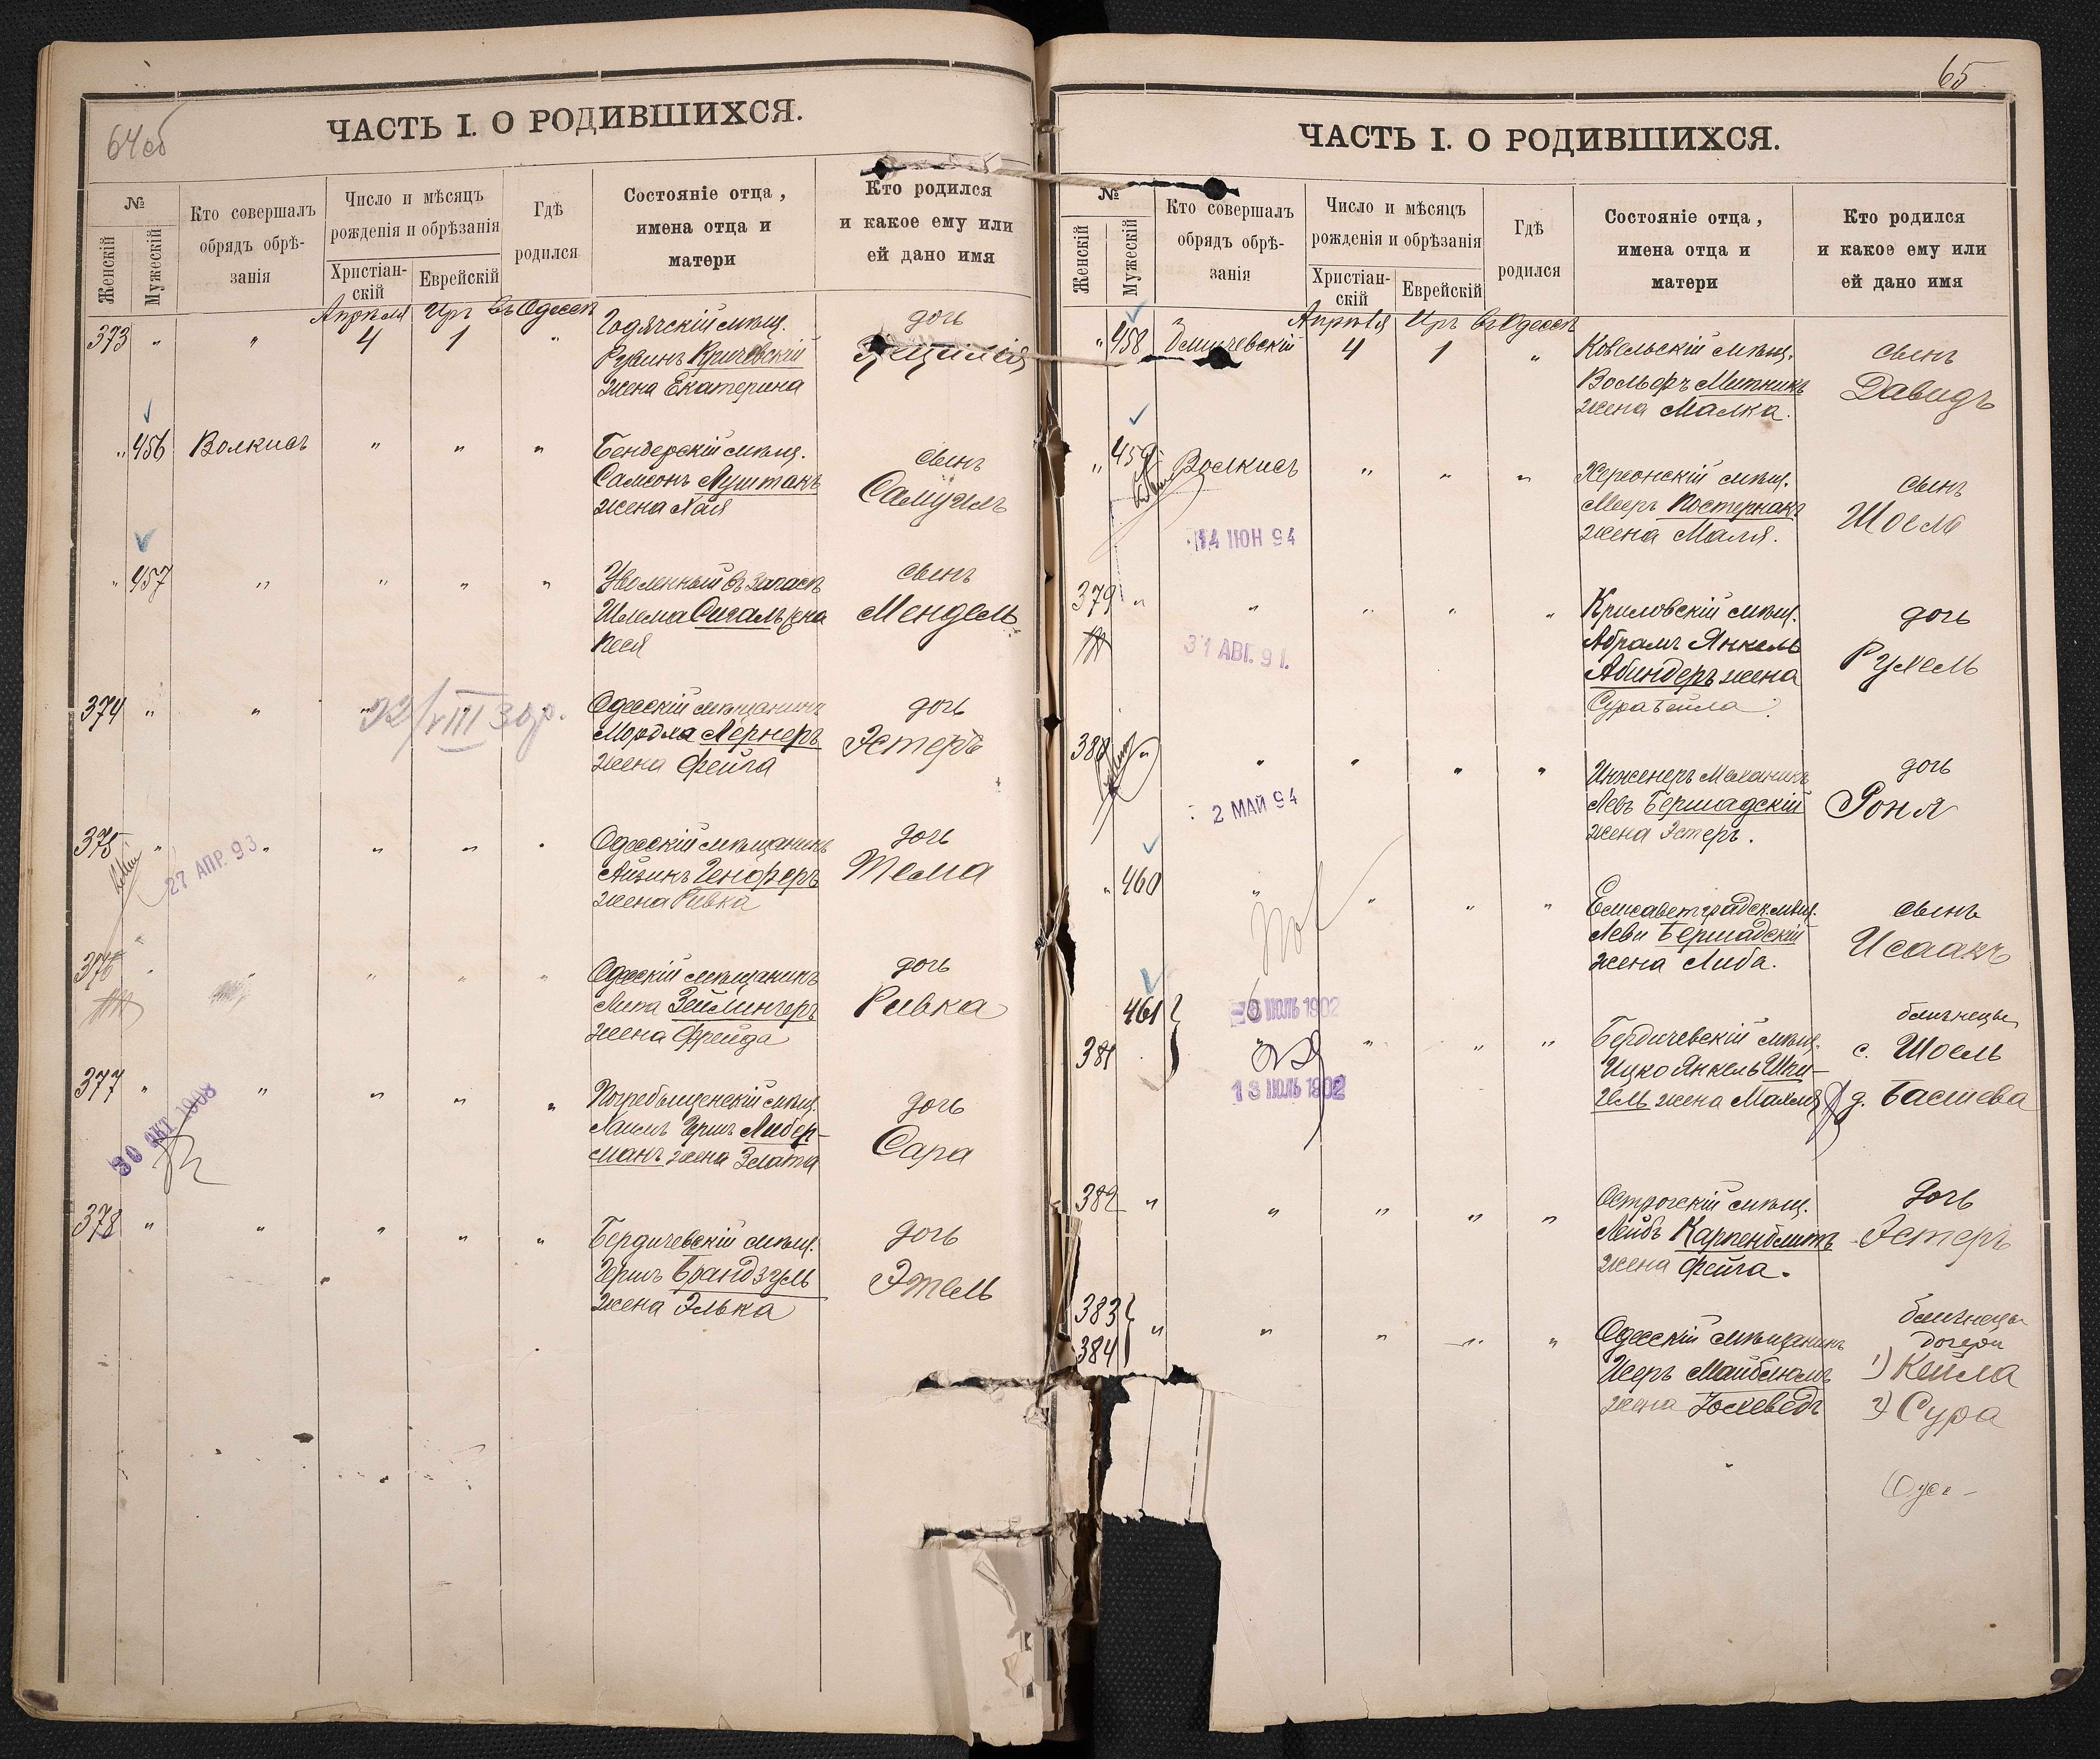 64об
ЧАСТЬ I. О РОДИВШИХСЯ.
№
Женскій
Мужескій
Кто совершалъ
обрядъ обрѣ-
занія
Число и мѣсяцъ
рожденія и обрѣзанія
Христіан-
скій
Еврейскій
Гдѣ
родился
Состояніе отца,
имена отца и
матери
Кто родился
и какое ему или
ей дано имя
Апрѣля Иръ Въ Одессѣ
373 " " 4 1 "
Гадячскій мѣщ.
Рувинъ Кричевскій
жена Екатерина
дочь
" 456 Волкисъ " " "
Бендерскій мѣщ.
Самсонъ Луштакъ
жена Хая
сынъ
Самуилъ
" 457 " " " "
Уволенный въ запасъ
Шлема Сигалъ жена
Песя
сынъ
Мендель
374 " " " "
22/VIII 30 р.
Одесскій мѣщанинъ
Мордла Лернеръ
жена Фейга
дочь
Эстеръ
375 " " " " "
27 АПР. 93
Одесскій мѣщанинъ
Айзикъ Генферъ
жена Ривка
дочь
Тема
376 " " " " "
Одесскій мѣщанинъ
Липа Зейлингеръ
жена Фрейда
дочь
Ривка
377 " " " " "
30 ОКТ 1908
Погребыщенскій мѣщ.
Хаимъ Гершъ Либер-
манъ жена Злата
дочь
Сара
378 " " " " "
Бердичевскій мѣщ.
Гершъ Брандзуль
жена Элька
дочь
Этель
65
ЧАСТЬ I. О РОДИВШИХСЯ.
№
Женскій
Мужескій
Кто совершалъ
обрядъ обрѣ-
занія
Число и мѣсяцъ
рожденія и обрѣзанія
Христіан-
скій
Еврейскій
Гдѣ
родился
Состояніе отца,
имена отца и
матери
Кто родился
и какое ему или
ей дано имя
Апрѣля Иръ Въ Одессѣ
" 458 4 1 "
Ковельскій мѣщ.
Вольфъ Митникъ
жена Малка.
сынъ
Давидъ
" 459 Волкисъ " " "
14 ІЮН 94
Херсонскій мѣщ.
Мееръ Постернакъ
жена Маля.
сынъ
Шоель
379 " " " " "
31 АВГ. 91.
Криловскій мѣщ.
Абрамъ Янкель
Абиндеръ жена
Сура Бейла.
дочь
Рухель
380 " " " " "
2 МАЙ 94
Инженеръ Механикъ
Левъ Бершадскій
жена Эстеръ.
дочь
Роня
" 460 " " " "
Елисаветградск. мѣщ.
Леви Бершадскій
жена Либа.
сынъ
Исаакъ
461
381 " " " "
6 ІЮЛЬ 1902
13 ІЮЛЬ 1902
Бердичевскій мѣщ.
Ицко Янкель Шпи-
гель жена Махля
близнецы
с. Шоель
д. Басшева
382 " " " " "
Острогскій мѣщ.
Лейбъ Карпенблитъ
жена Фейга.
дочь
Эстеръ
383
384 " " " " "
Одесскій мѣщанинъ
Исеръ Майблюмъ
жена Юхеведъ
близнецы
дочери
1) Кейла
2) Сура